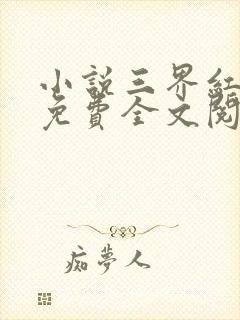 小説三界紅
免費全文閱
痴夢人